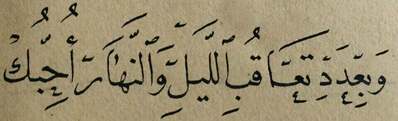 وَبِعَدَدِ تَعَاقُبِ ٱللَّيْلِ وَٱلنَّهَارِ أُحِبُّكَ